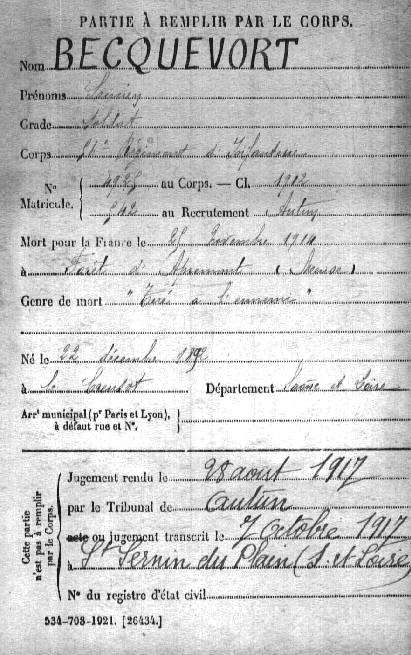 PARTIE À REMPLIR PAR LE CORPS.
Nom BECQUEVORT
Prénoms
Grade Soldat
Corps Régiment d'Infanterie
N° Matricule. { au Corps. — Cl. 1912
au Recrutement Autun
Mort pour la France le novembre 1914
à Forêt d'Apremont (Meuse)
Genre de mort "Tué à l'ennemi"
Né le 22 décembre 1892
à le Creusot Département Saône et Loire
Arrt municipal (pr Paris et Lyon),
à défaut rue et N°.
Cette partie n'est pas à remplir par le Corps.
Jugement rendu le 28 aout 1917
par le Tribunal de Autun
acte ou jugement transcrit le 7 Octobre 1917
à St Sernin du Plain (S. et Loire)
N° du registre d'état civil
534-708-1921. [26434.]